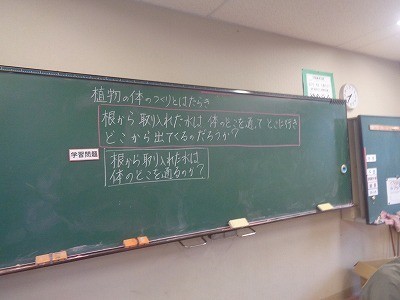 植物の体のつくりとはたらき
根から取り入れた水は 体のどこを通って どこに行き
どこから出てくるのだろうか?
学習問題
根から取り入れた水は
体のどこを通るのか?